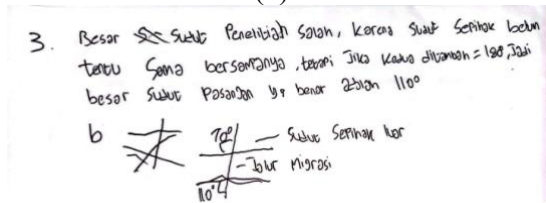 3. Besar Sudut Penelitiah salah, karena sudut sepihak belum
tentu sama besarnya, tetapi jika kedua ditambah = 180, Jadi
besar sudut pasangan yg benar adalah 110°
b
70° — sudut sepihak luar
- Jalur Migrasi
110°